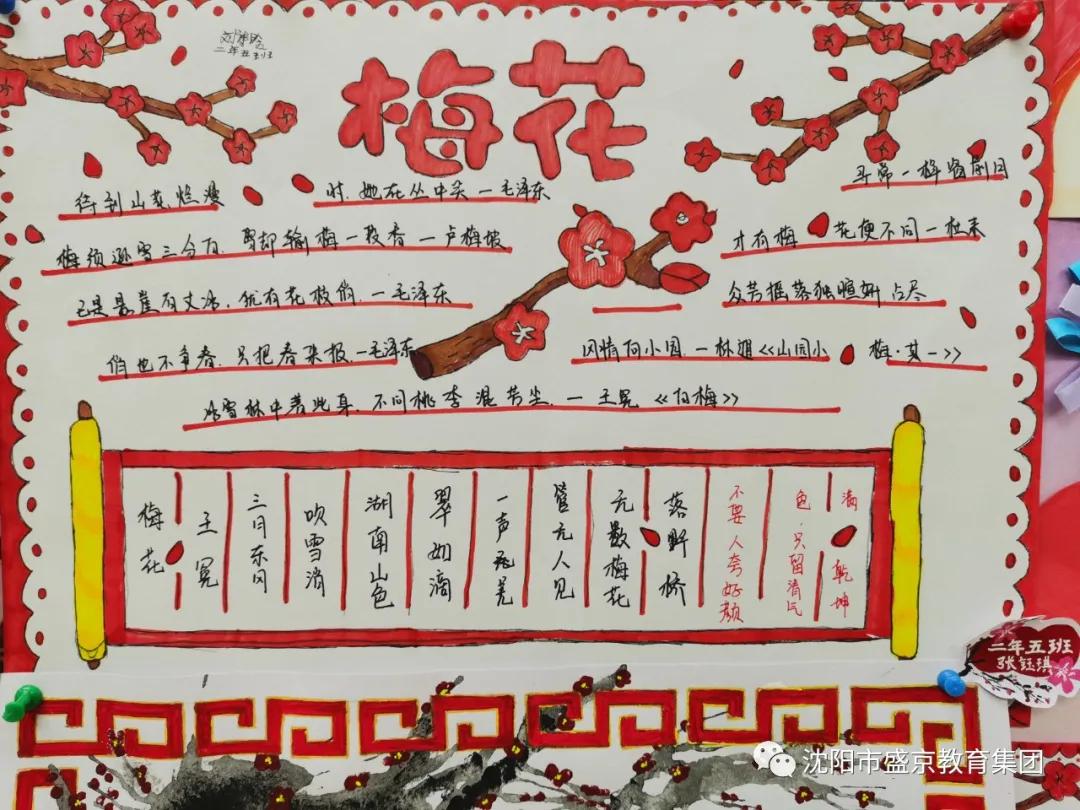 二年五班
梅花
待到山花烂漫时,她在丛中笑一毛泽东
梅须逊雪三分白 雪却输梅一段香一卢梅坡
已是悬崖百丈冰.犹有花枝俏.一毛泽东
俏也不争春.只把春来报一毛泽东
寻常一样窗前月
才有梅花便不同一杜耒
众芳摇落独暄妍 占尽
风情向小园一林逋《山园小梅·其一》
冰雪林中著此身.不同桃李混芳尘.一王冕《白梅》
梅花
王冕
三月东风
吹雪消
湖南山色
翠如滴
一声羌
管无人见
无数梅花
落野桥
不要人夸好颜
色.只留清气
满乾坤
二年五班
张钰琪
沈阳市盛京教育集团